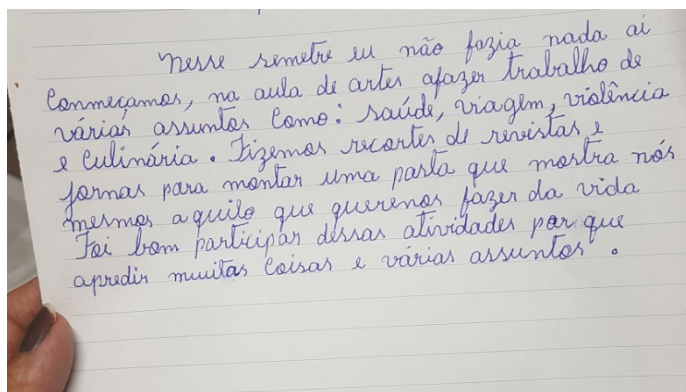 Nesse semetre eu não fazia nada ai
Conmeçamos, na aula de artes afazer trabalho de
várias assuntos como: saúde, viagem, violência
e Culinária. Fizemos recortes de revistas e
jornas para montar uma pasta que mostra nós
mesmos aquilo que querenos fazer da vida
Foi bom participar dessas atividades por que
apredir muitas Coisas e várias assuntos.